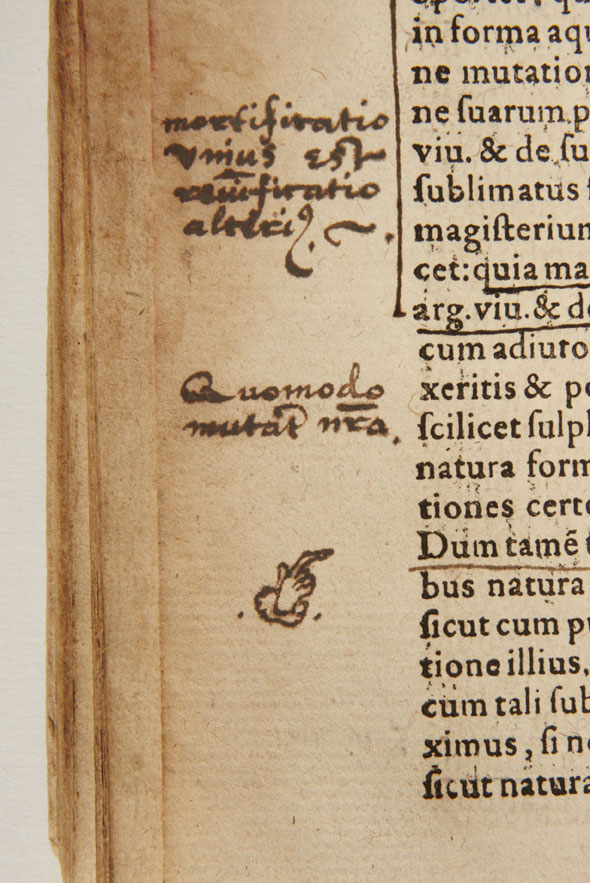 mortificatio
vnius est
reuificatio
alteri9.
Quomodo
mutat nr̄a.
in forma aqu
ne mutation
ne ſuarum p
viu. & de ſu
ſublimatus ſ
magiſterium
cet: quia ma
arg. viu. & de
cum adiuto
xeritis & po
ſcilicet ſulph
natura form
tiones certe
Dum tamē t
bus natura
ſicut cum pu
tione illius,
cum tali ſub
ximus, ſi no
ſicut natura